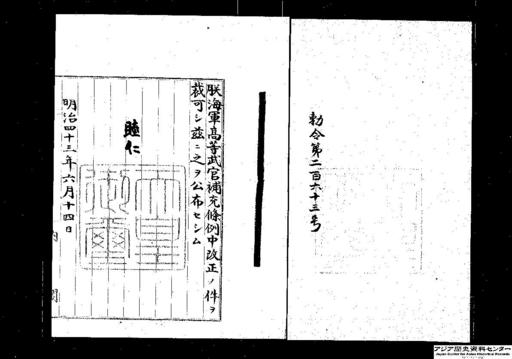 勅令第二百六十三号
朕海軍高等武官補充條例中改正ノ件ヲ
裁可シ茲ニ之ヲ公布セシム
睦仁
天皇御璽
明治四十三年六月十四日
内閣
アジア歴史資料センター
Japan Center for Asian Historical Records